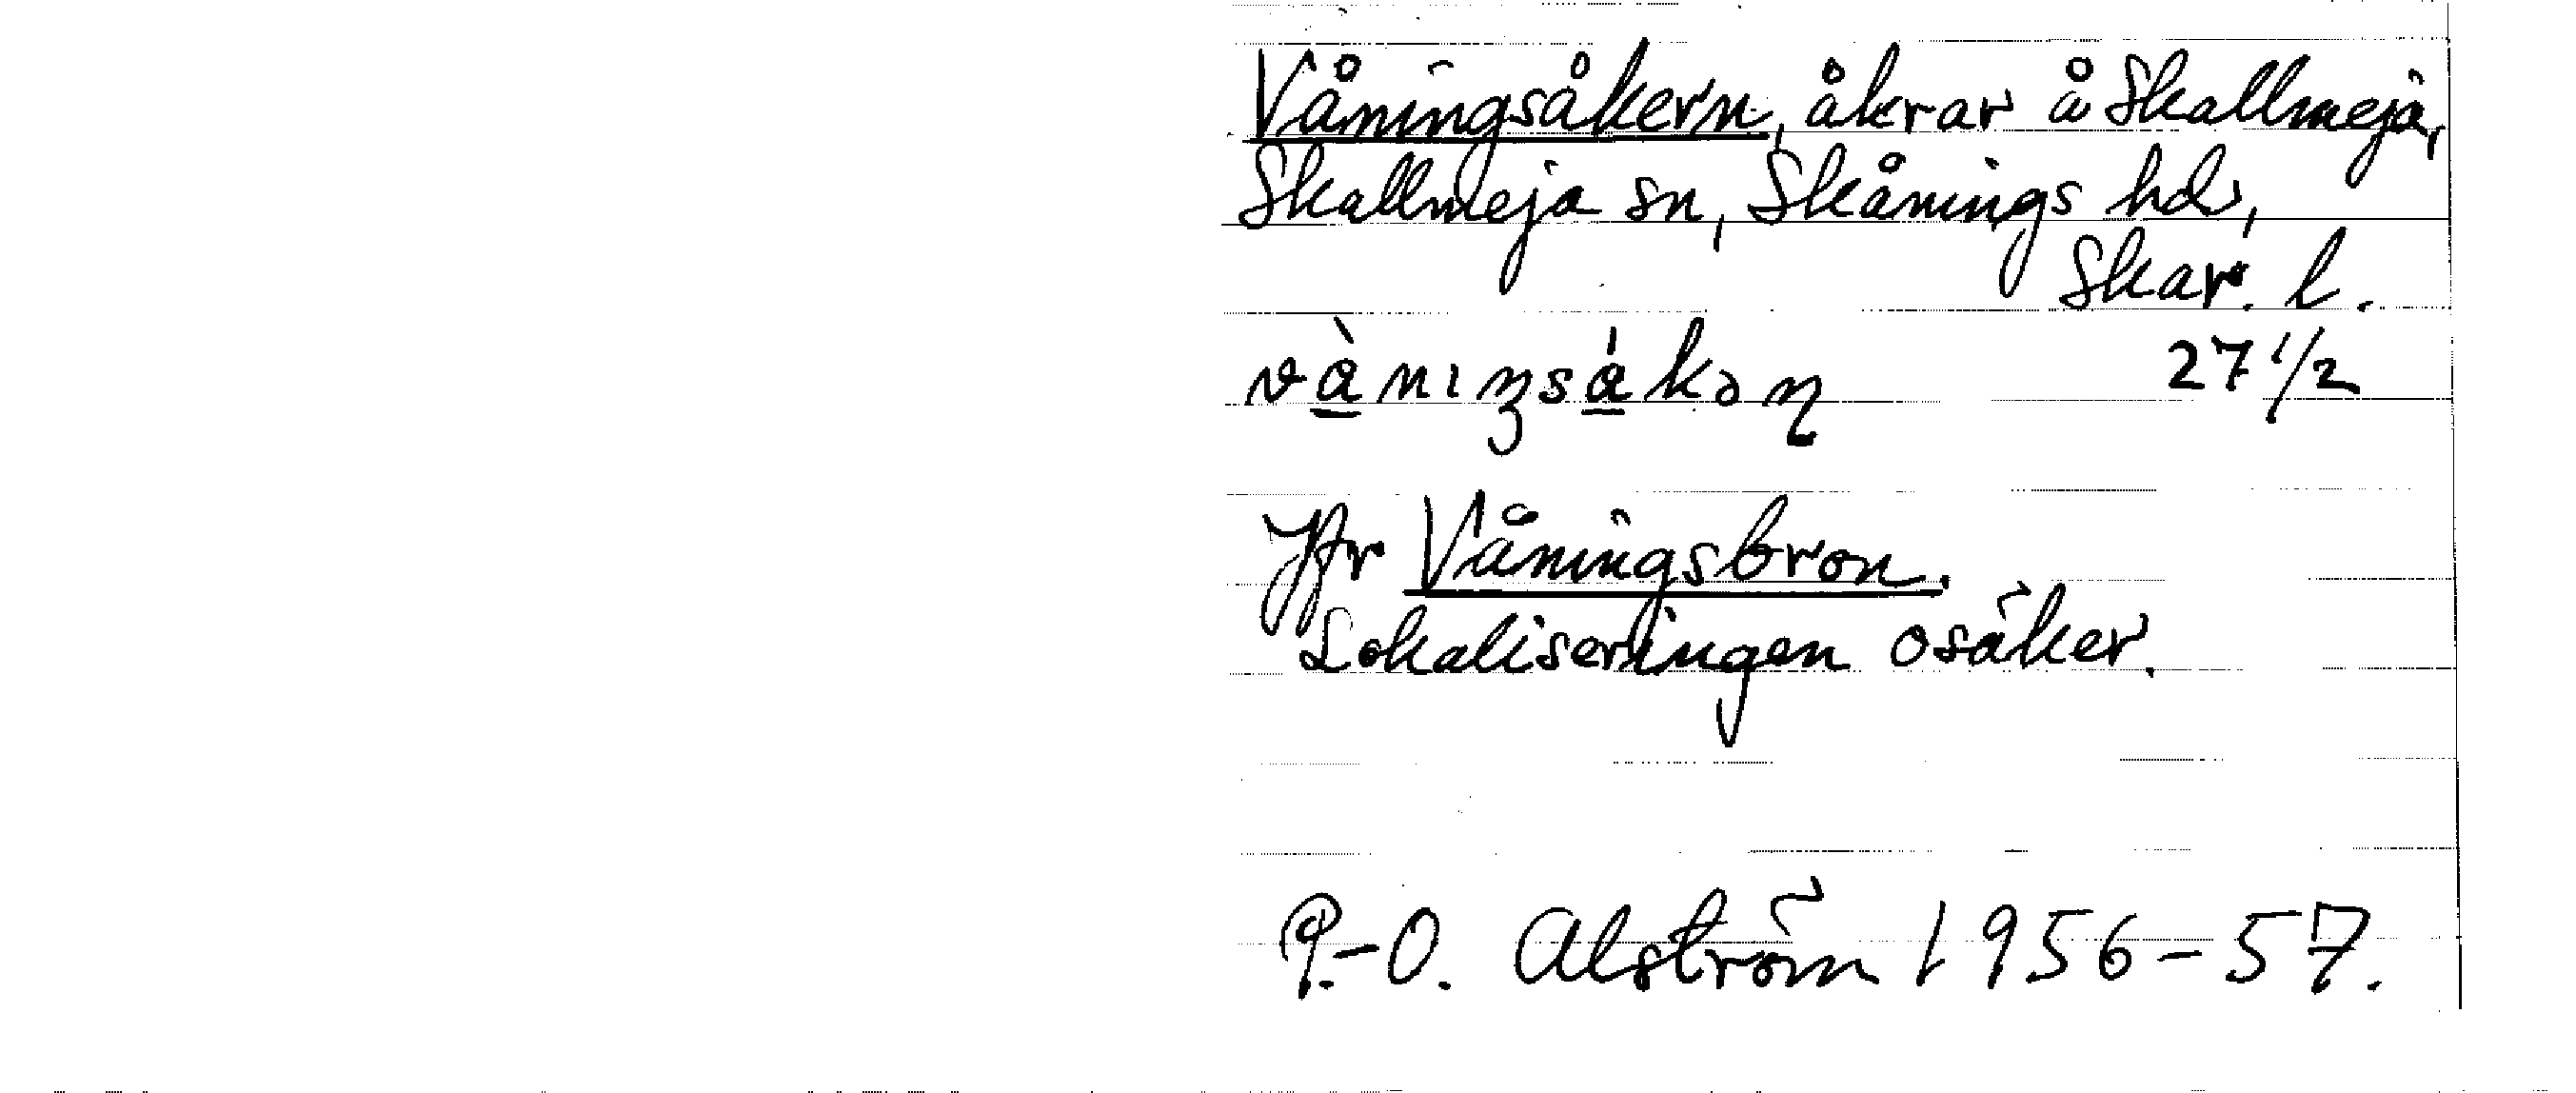 Våningsåkern, åkrar å Skallmeja,
Skallmeja sn, Skånings hd,
Skar. l.
vàniŋsákəɳ 27 1/2
Jfr Våningsbron.
Lokaliseringen osäker.
P.-O. Alström 1956-57.